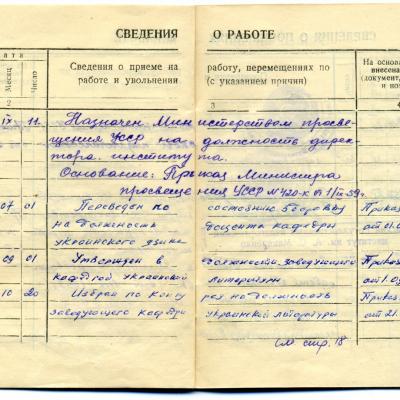 СВЕДЕНИЯ О РАБОТЕ
Месяц
Число
Сведения о приеме на работу, перемещениях по
работе и увольнении (с указанием причин)
На основа
внесена
(документ,
и но
2 3 4
IX 11 Назначен Министерством просве-
щения УССР на должность дирек-
тора института.
Основание: Приказ Министра
просвещения УССР № 420-к от 1/IX 59 г.
07 01 Переведен по состоянию здоровья Приказ
на должность доцента кафедры от 01.0
украинского языка
09 01 Утвержден в должности заведующего Приказ
кафедрой украинской литературы от 1.09
10 20 Избран по конкурсу на должность Приказ
заведующего кафедры украинской литературы от 21.
См. стр. 18